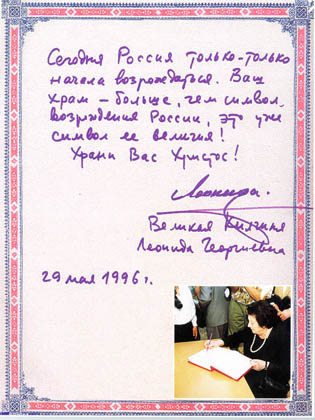 Сегодня Россия только-только
начала возрождаться. Ваш
храм – больше, чем символ
возрждения России, это уже
символ ее величия!
Храни Вас Христос!
Леонида.
Великая Княгиня
Леонида Георгиевна
29 мая 1996 г.